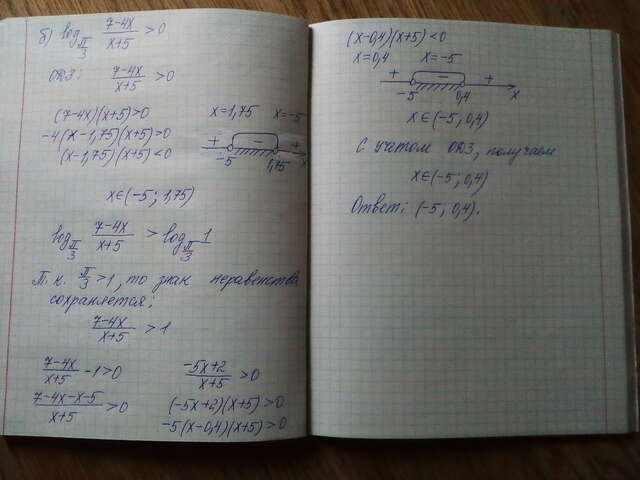 б) log_{π/3} (7-4x)/(x+5) > 0
ОДЗ: (7-4x)/(x+5) > 0
(7-4x)(x+5)>0 x=1,75 x=-5
-4(x-1,75)(x+5)>0
(x-1,75)(x+5)<0
+ - +
-5 1,75 x
x∈(-5; 1,75)
log_{π/3} (7-4x)/(x+5) > log_{π/3} 1
Т.к. π/3 >1, то знак неравенства
сохраняется:
(7-4x)/(x+5) > 1
(7-4x)/(x+5) -1>0
(7-4x-x-5)/(x+5) >0
(-5x+2)/(x+5) >0
(-5x+2)(x+5)>0
-5(x-0,4)(x+5)>0
(x-0,4)(x+5)<0
x=0,4 x=-5
+ - +
-5 0,4 x
x∈(-5; 0,4)
С учетом ОДЗ, получаем
x∈(-5; 0,4)
Ответ: (-5; 0,4).